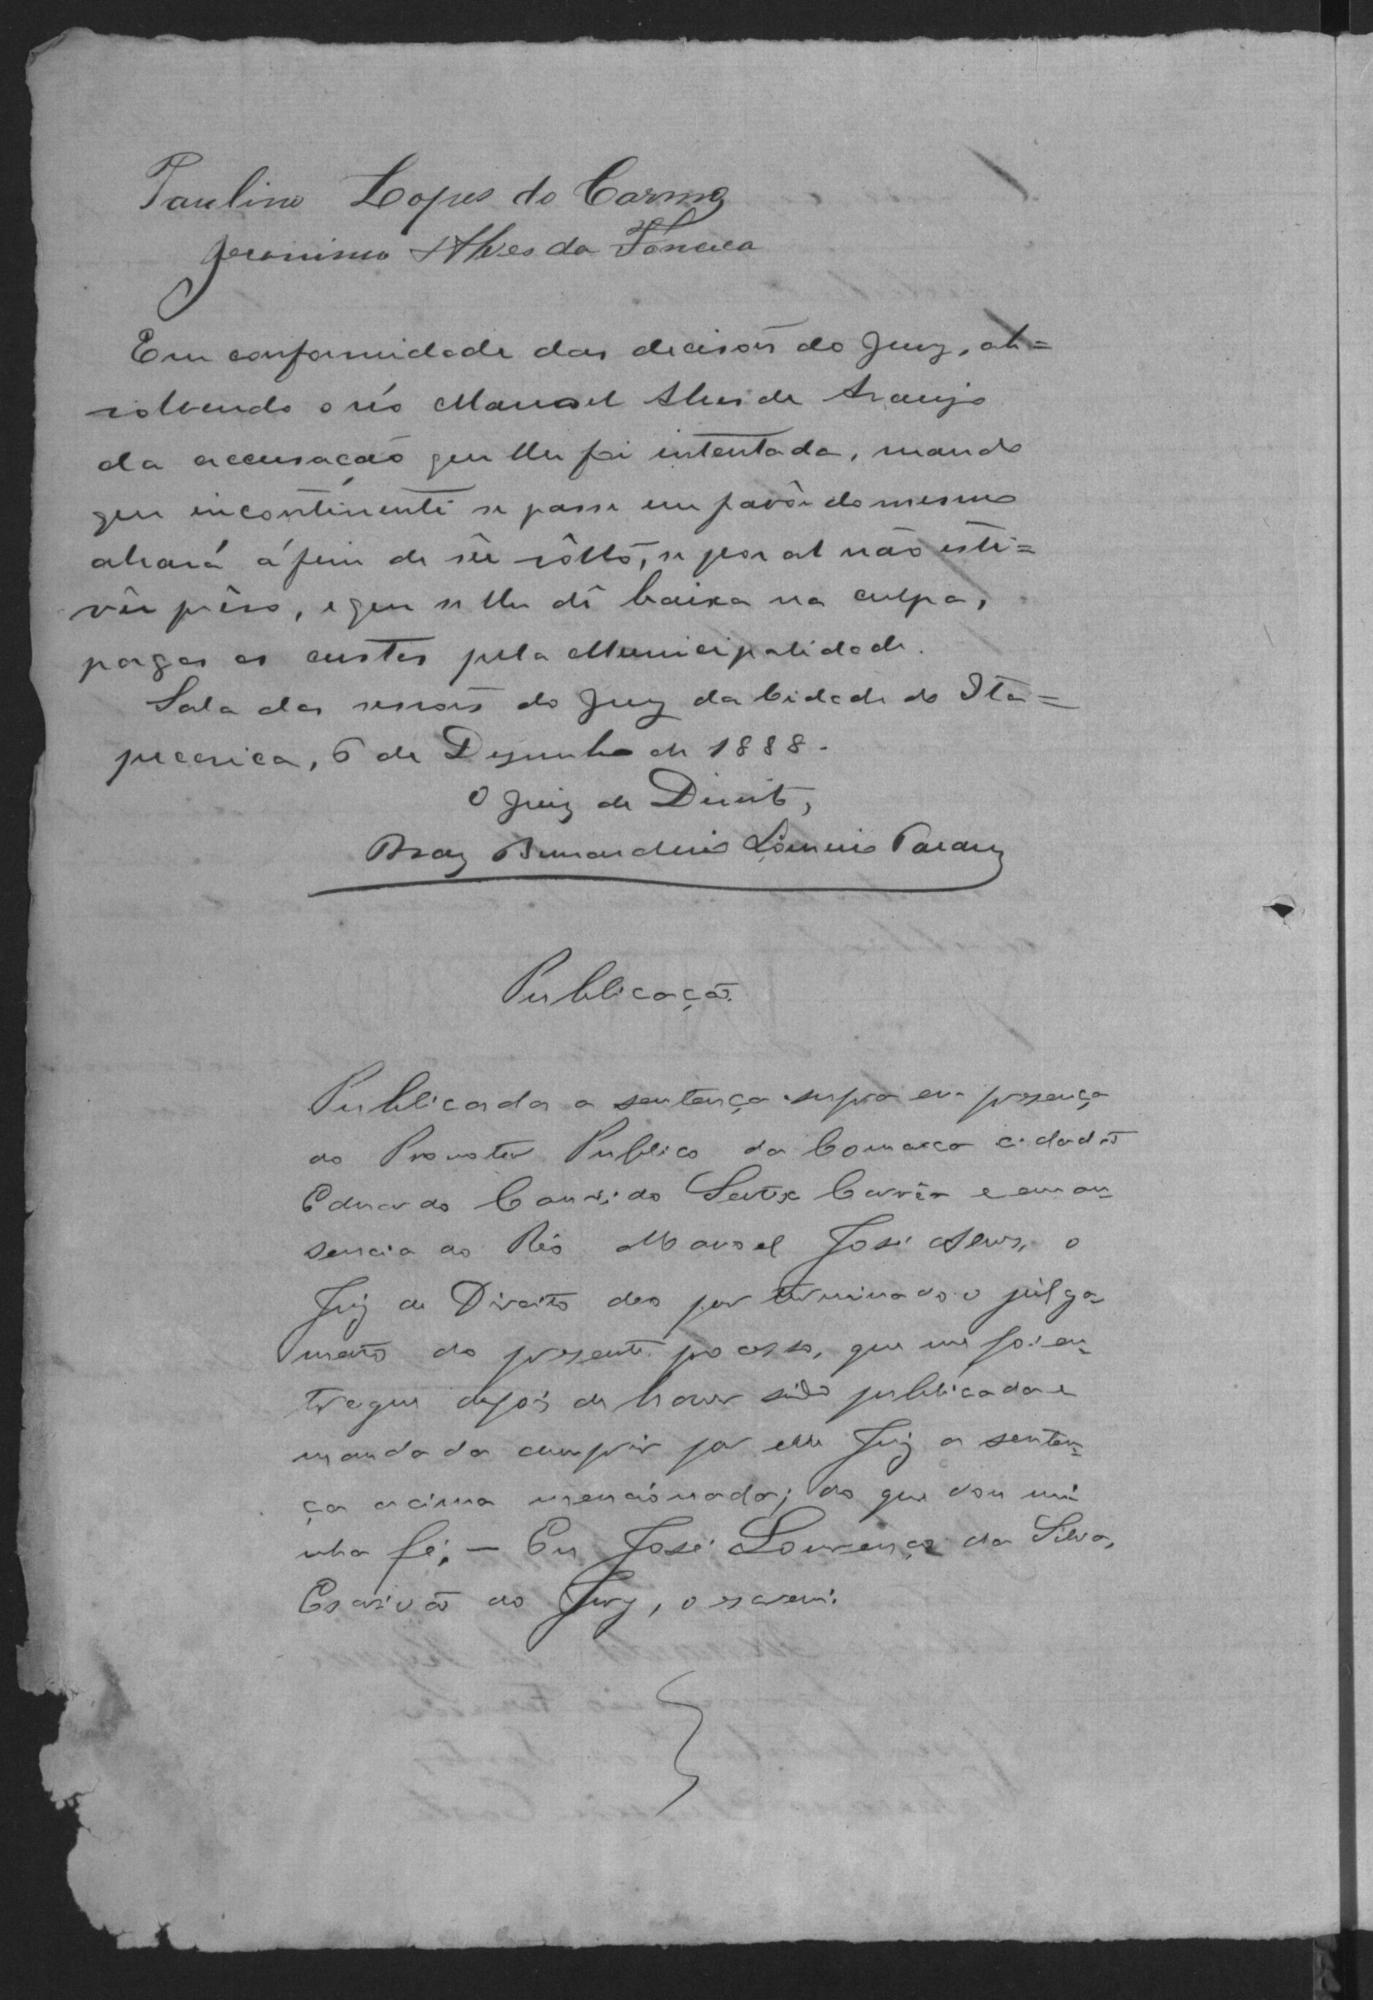 Paulino Lopes do Carmo
Jeronimo Alves da Fonceca
Em conformidade das decisões do Jury, ab=
solvendo o réo Manoel Alves de Araujo
da accusação que lhe foi intentada, mando
que incontinenti se passe em favôr do mesmo
alvará á fim de sêr sôlto, se por al não esti=
vêr prêso, e que se lhe dê baixa na culpa,
pagas as custas pela Municipalidade.
Sala das sessões do Jury da Cidade de Ita=
pecerica, 6 de Dezembro de 1888.
O Juiz de Direito,
Braz Bernardino Loureiro Tavares
Publicação.
Publicada a sentença supra em presença
do Promotor Publico da Comarca cidadão
Eduardo Candido Corrêa e em au-
sencia do Réo Manoel José Alves, o
Juiz de Direito deo por terminado o julga-
mento do presente processo, que me foi en-
tregue depois de haver sido publicada e
mandada cumprir por elle Juiz a senten-
ça acima mencionada; do que dou mi
nha fé; — Eu José Lourenço da Silva,
Escrivão do Jury, o escrevi.